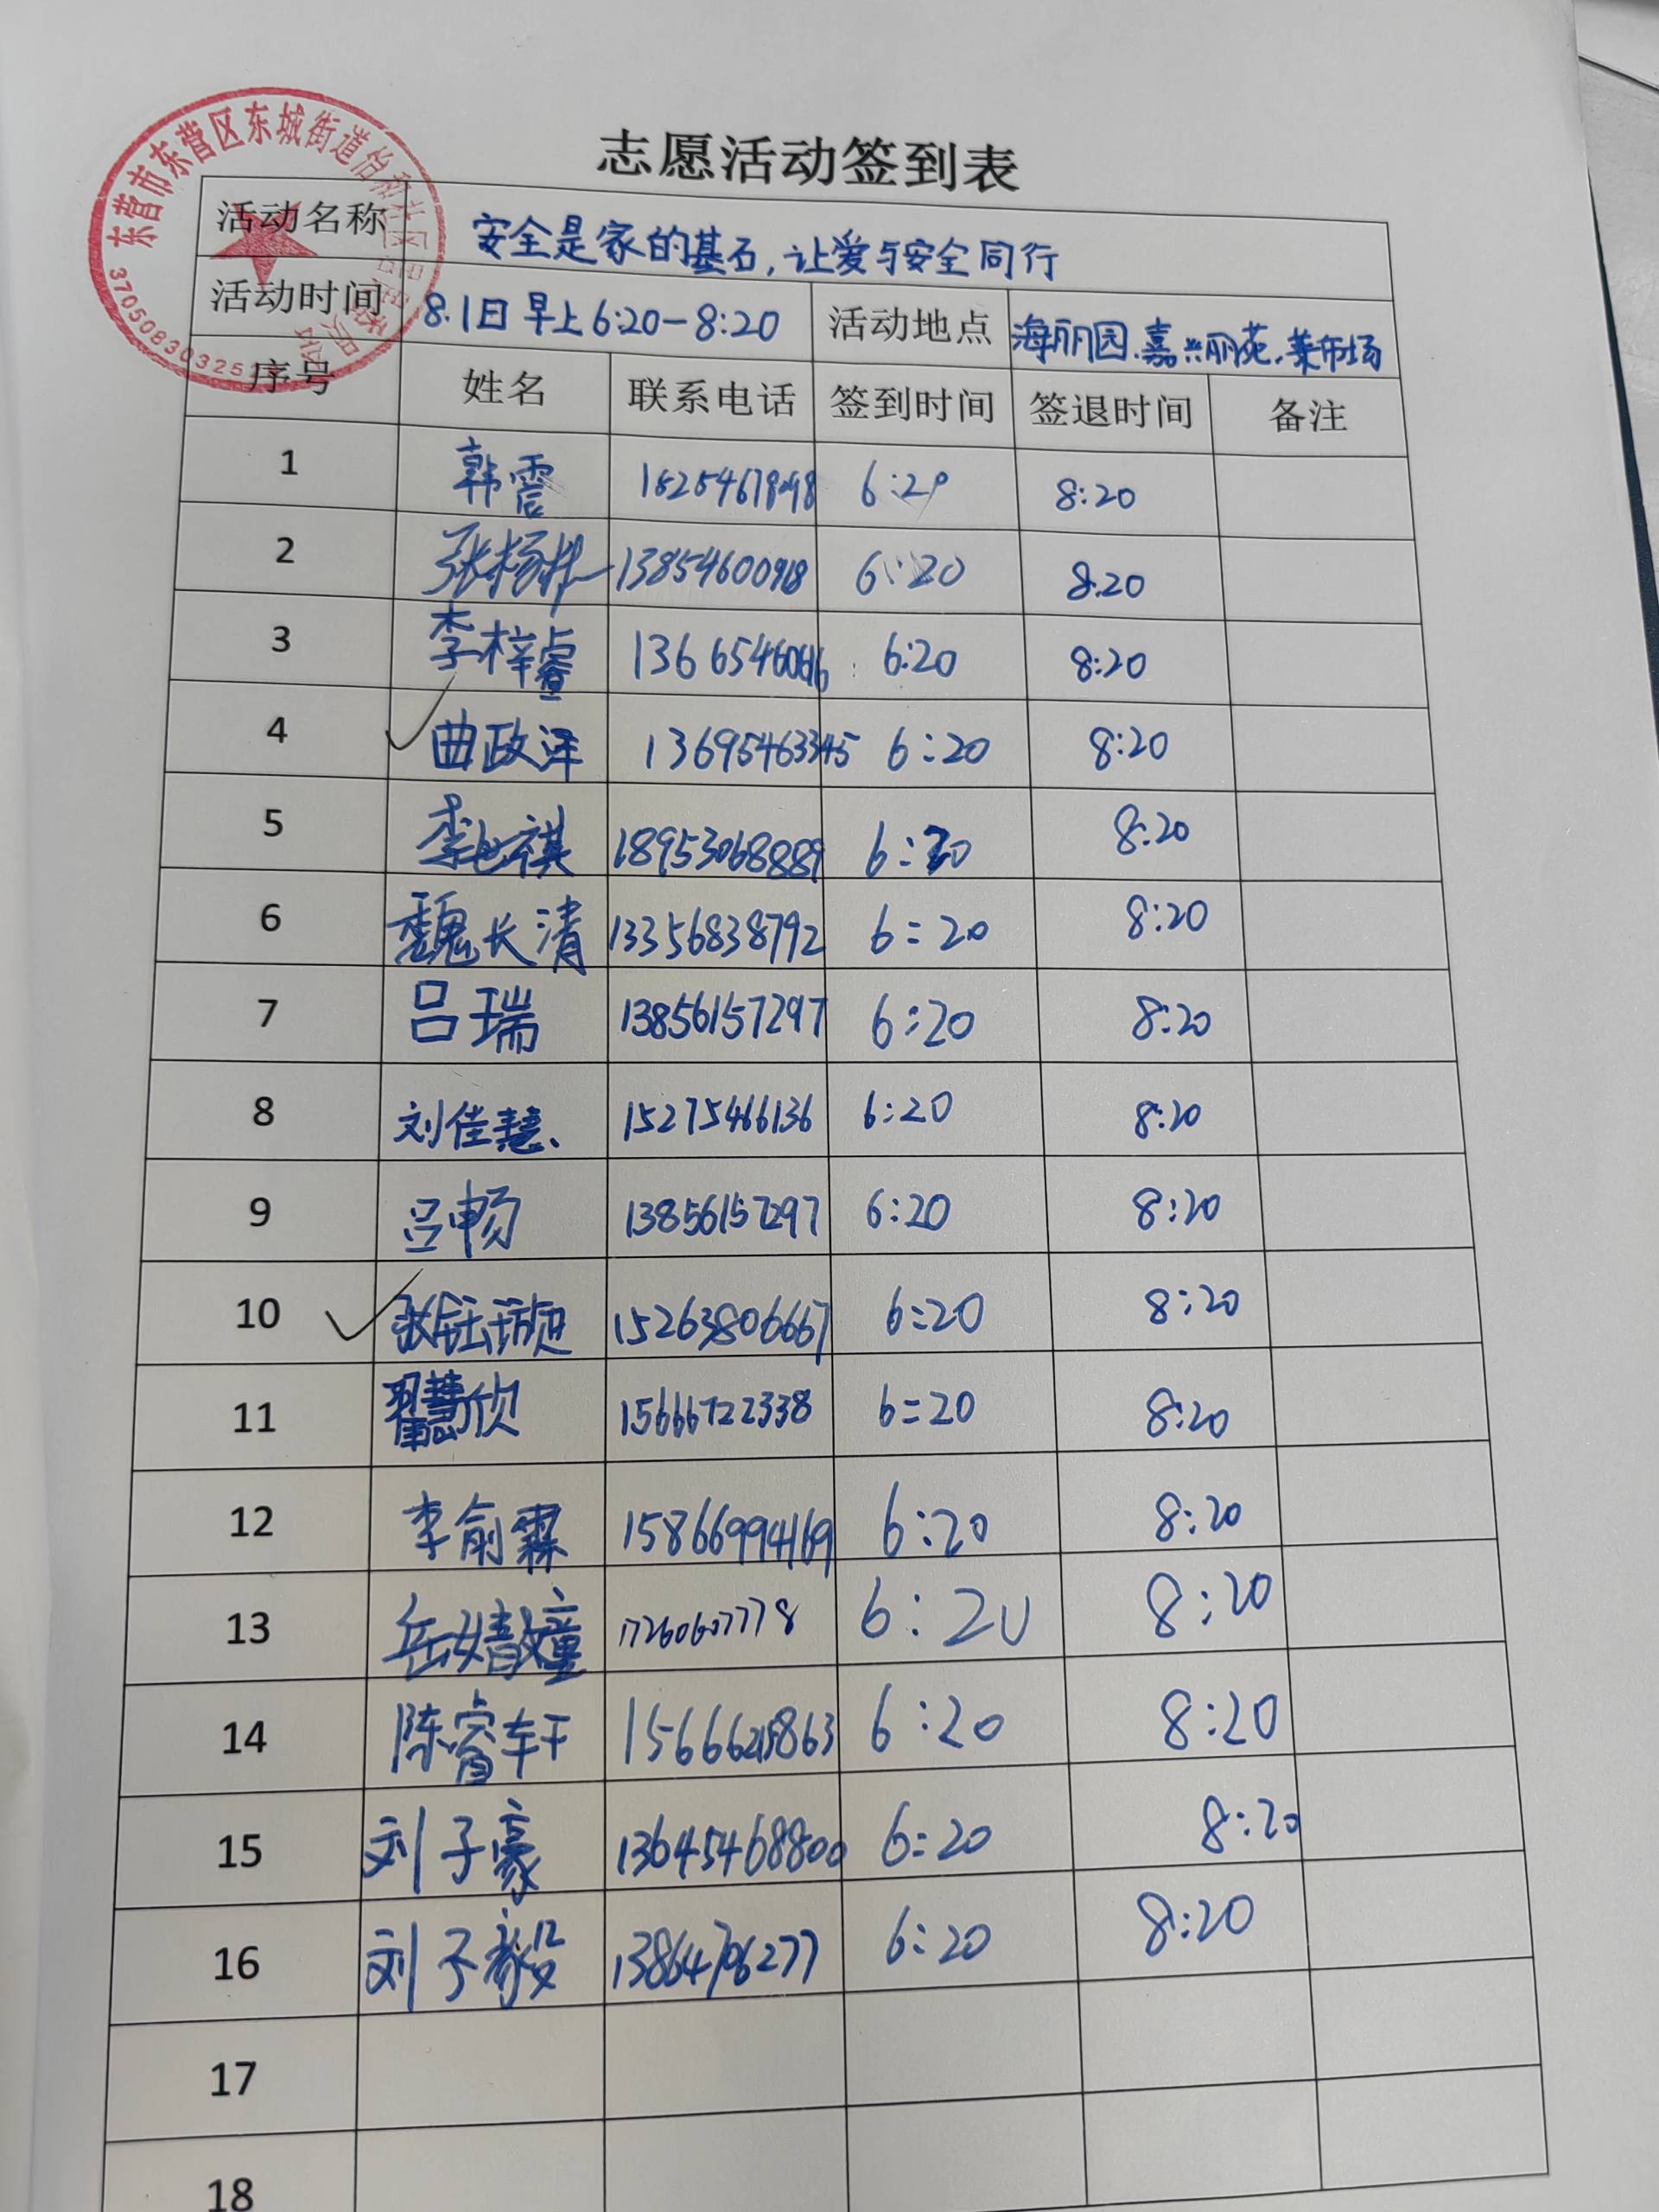 志愿活动签到表
东营市东营区东城街道怡和社区
活动名称 安全是家的基石,让爱与安全同行
活动时间 8.1日早上6:20-8:20 活动地点 海丽园.嘉兴丽苑.菜市场
序号 姓名 联系电话 签到时间 签退时间 备注
1 韩震 6:20 8:20
2 13854600918 6:20 8:20
3 李梓睿 6:20 8:20
4 曲政泽 13695463345 6:20 8:20
5 18953068889 6:20 8:20
6 魏长清 13356838792 6:20 8:20
7 吕瑞 13856157297 6:20 8:20
8 刘佳慧、 15275466136 6:20 8:20
9 吕畅 13856157297 6:20 8:20
10 15263806667 6:20 8:20
11 翟慧欣 15666722338 6:20 8:20
12 李俞霖 15866994169 6:20 8:20
13 17260607778 6:20 8:20
14 陈睿轩 6:20 8:20
15 刘子豪 13645468800 6:20 8:20
16 刘子毅 13864706277 6:20 8:20
17
18